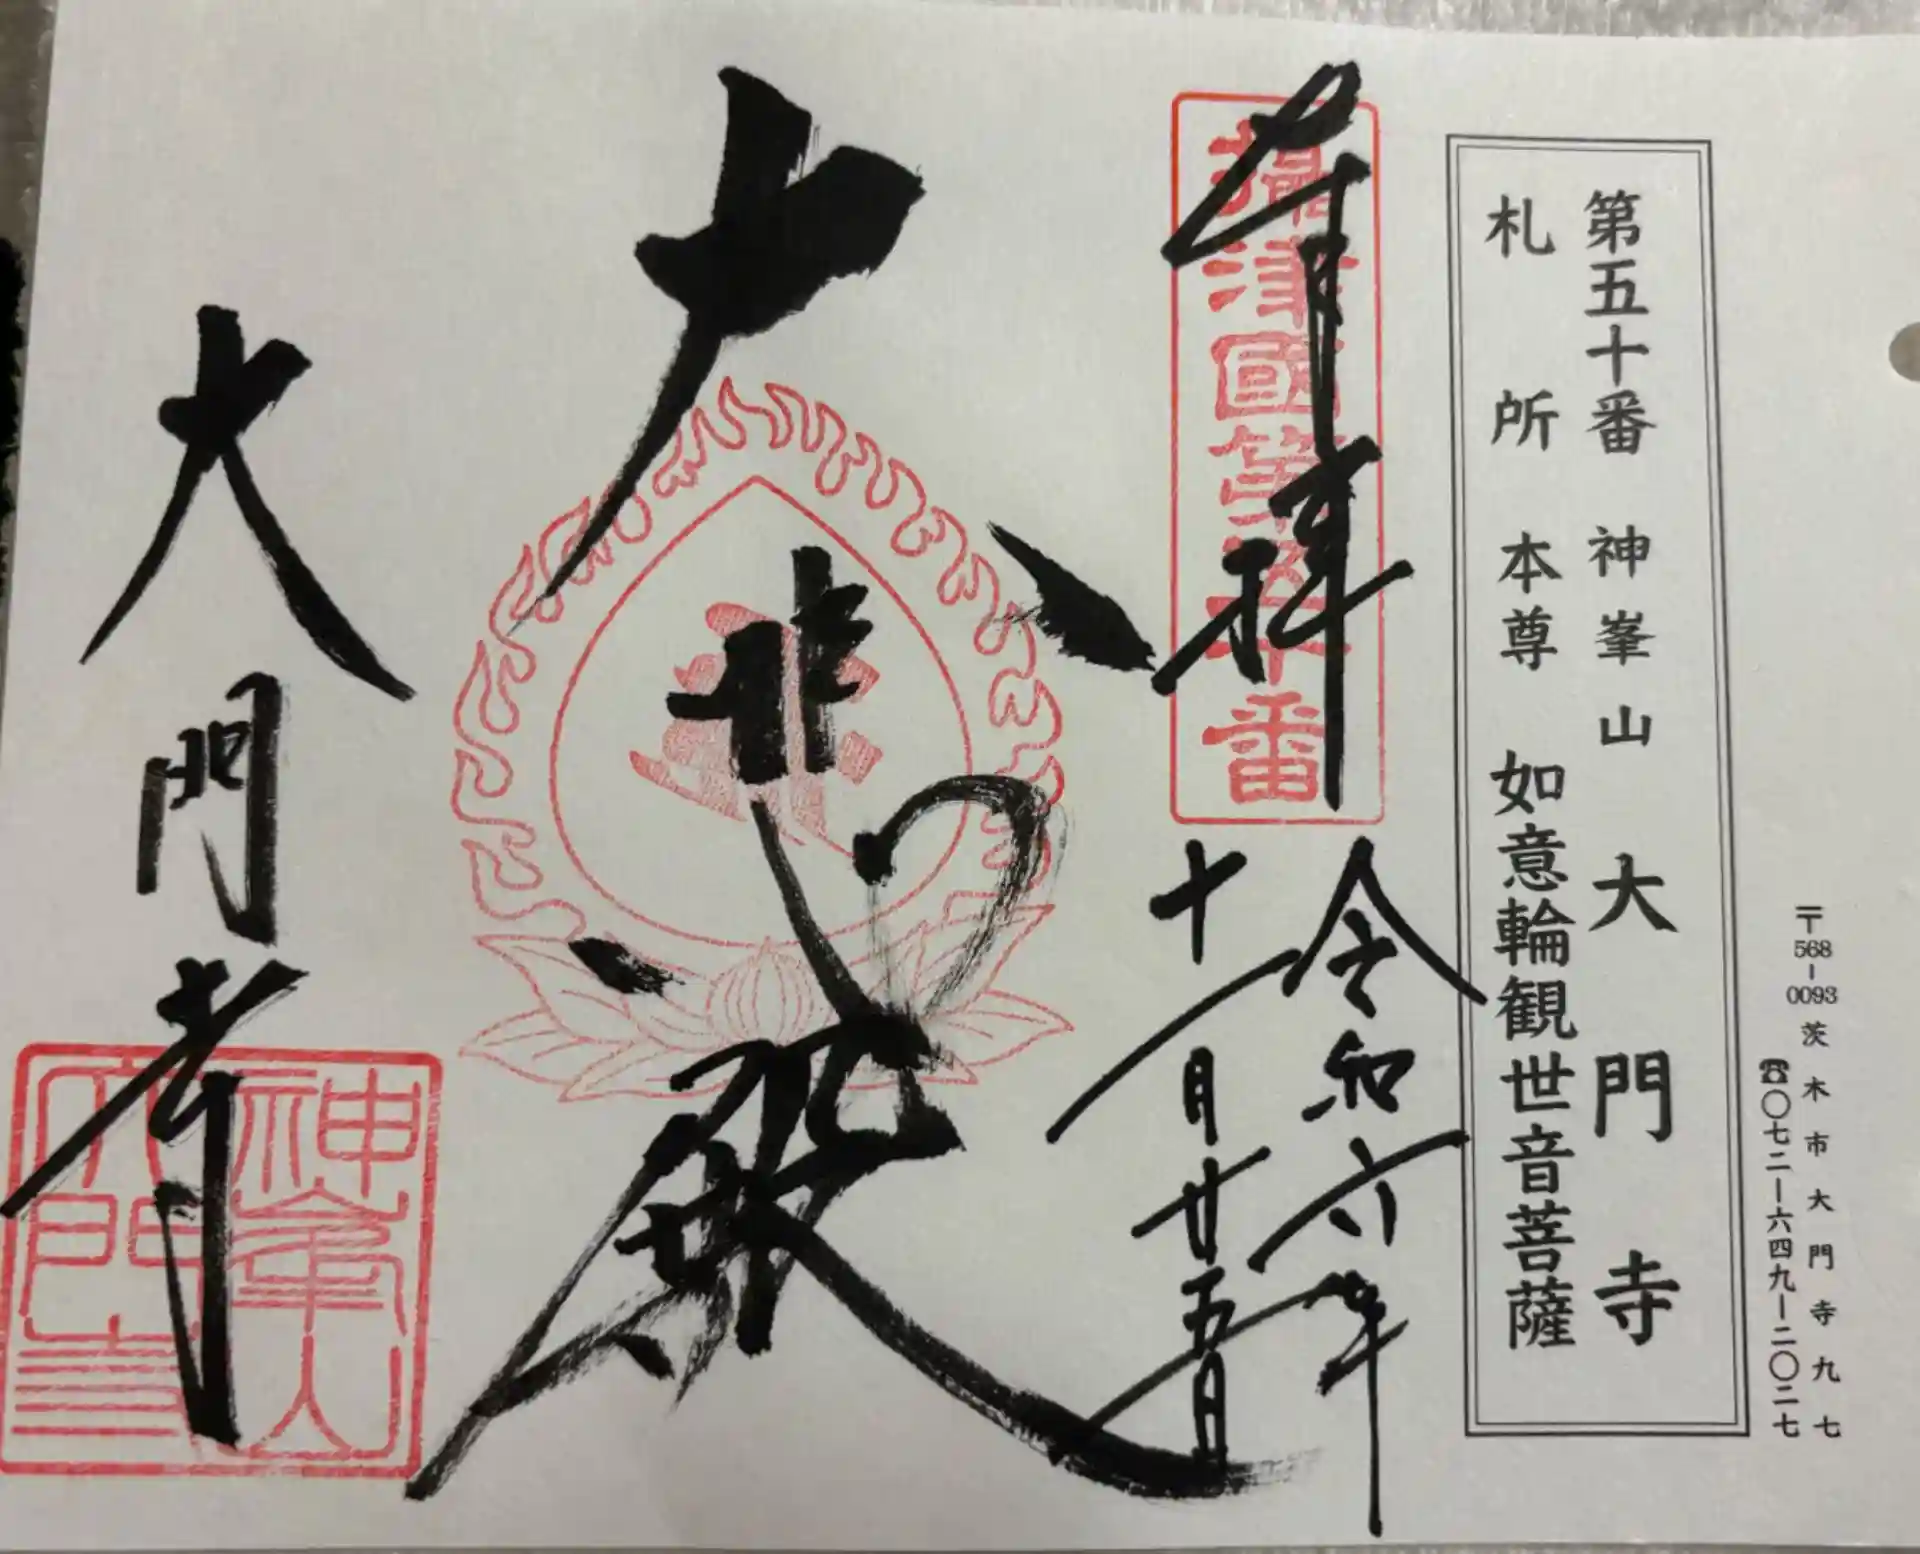 〒568-0093 茨木市大門寺九七
☎〇七二ー六四九ー二〇二七
第五十番 神峯山 大門寺
札所 本尊 如意輪観世音菩薩
奉拝
攝津國第五十番
令和六年
十一月廿五日
大悲殿
大門寺
神峯山
大門寺